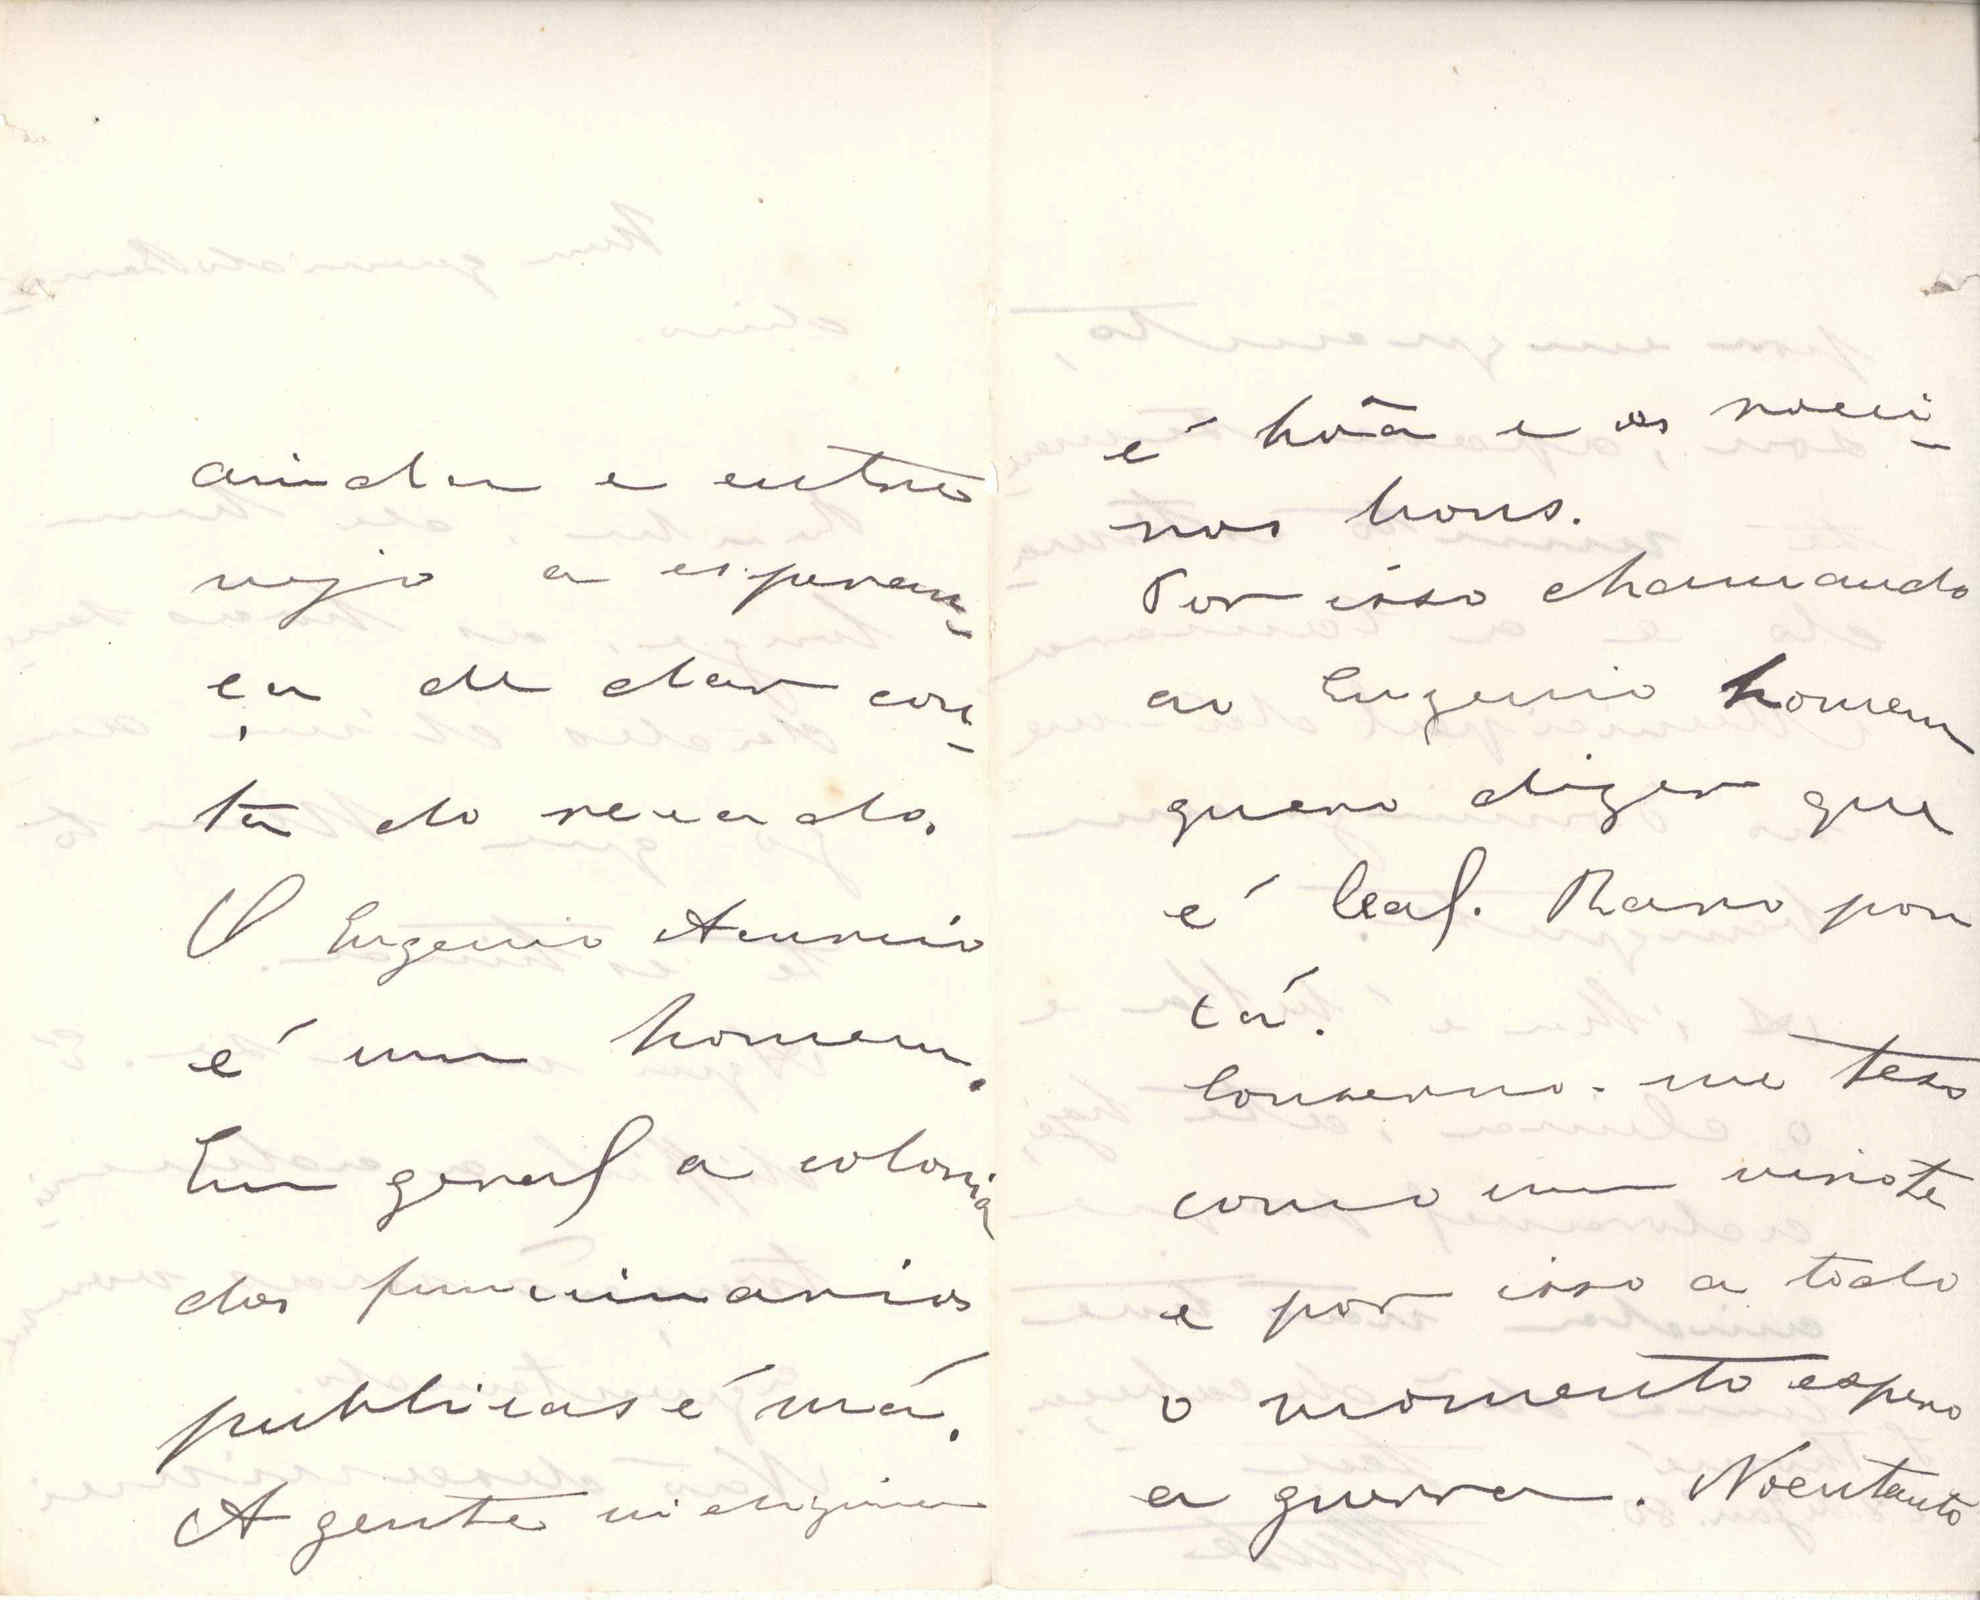 ainda e entre
vejo a esperan-
ça de dar con-
ta do recado.
O Eugenio Aureio
é um homem.
Em geral a colonia
dos funcionarios
publicos é má.
A gente indigena
é bôa e os visi-
nos bons.
Por isso chamando
ao Eugenio homem
quero dizer que
é leal. Raro por
cá.
Conservo-me teso
como um virote
e por isso a todo
o momento espero
a guerra. Noentanto